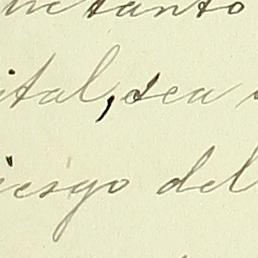 tanto
ital, sea
iesgo del